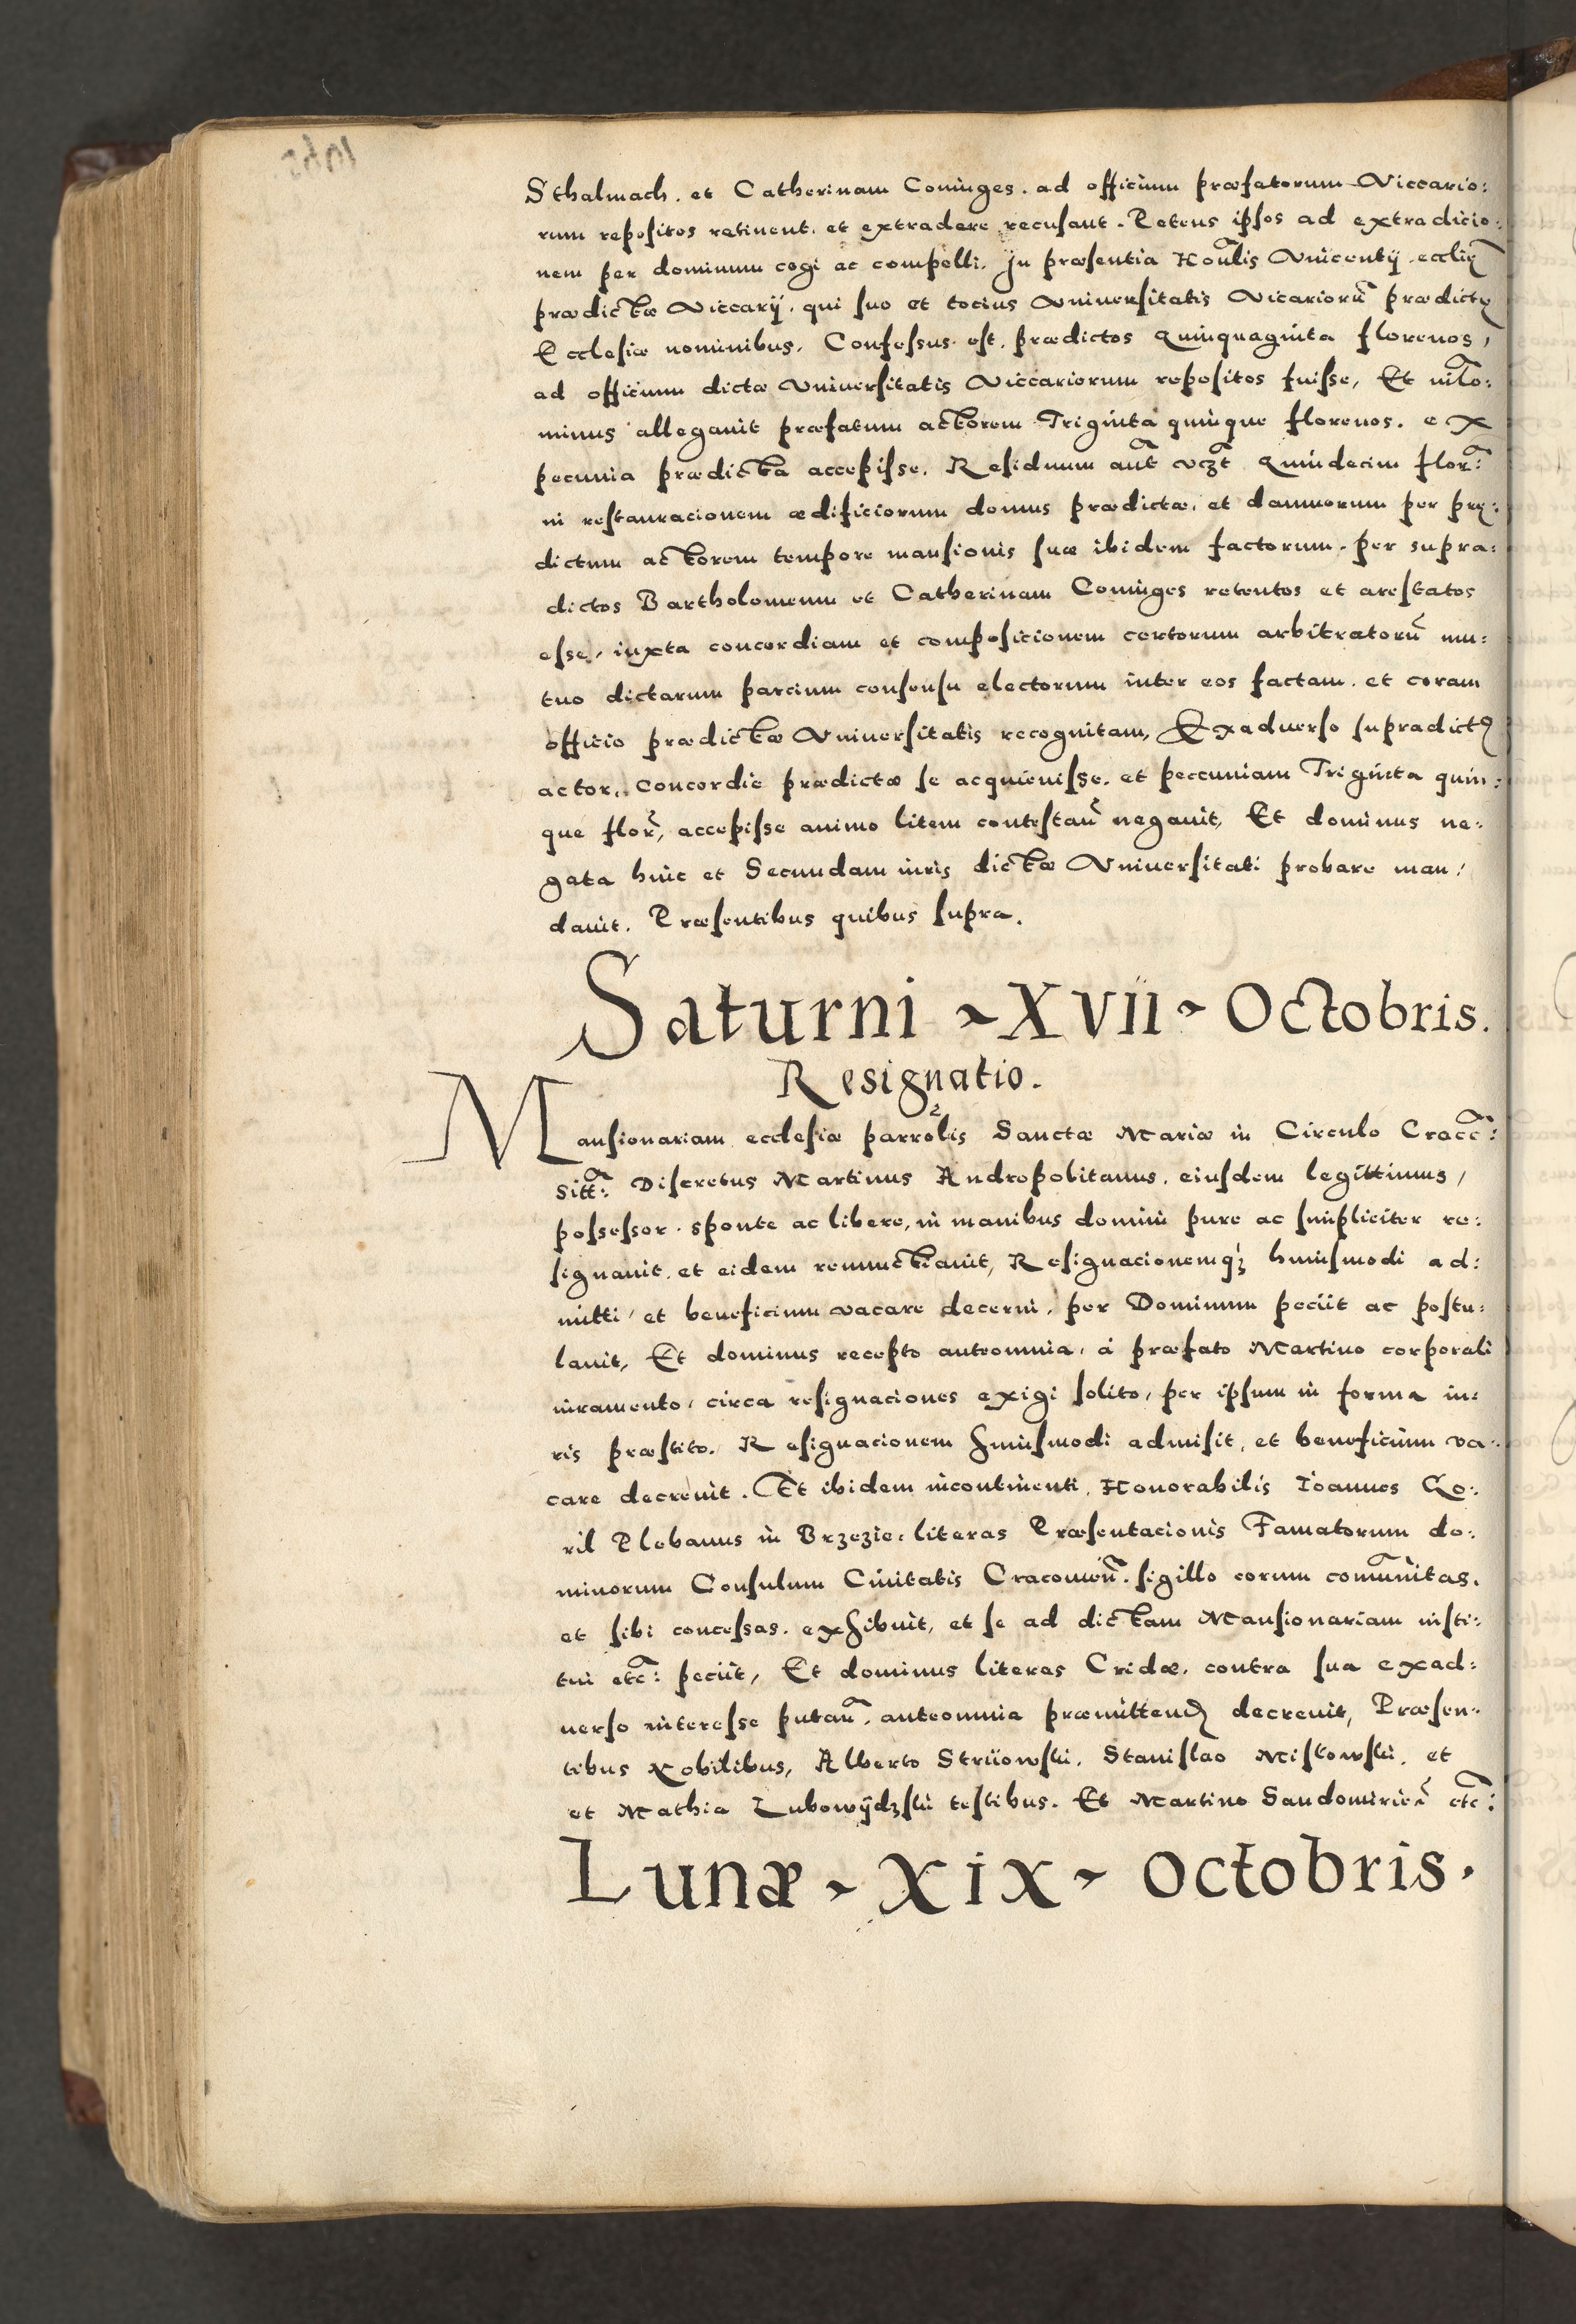 Sthalmach. et Catherinam Coninges. ad officium præfatorum Viccario:
rum repositos retinent. et extradere recusant. Petens ipsos ad extradicio:
nem per dominum cogi ac compelli. In præsentia Honũlis Vincentÿ. ecclię
prædictæ Viccarÿ. qui suo et tocius Vniuersitatis Vicariorũ prædictę
Ecclesiæ nominibus. Confessus est. prædictos Quinquaginta florenos,
ad officium dictæ Vniuersitatis Viccariorum repositos fuisse, Et nĩlo:
minus allegauit præfatum actorem Triginta quinque florenos. ex
pecunia prædicta accepisse. Residuum aũt vczt Quindecim flor:
in restauracionem ædificiorum domus prædictæ. et damnorum per prę:
dictum actorem tempore mansionis suæ ibidem factorum. per supra:
dictos Bartholomeum et Catherinam Coninges retentos et arestatos
esse, iuxta concordiam et composicionem certorum arbitratorũ mu:
tuo dictarum parcium consensu electorum inter eos factam. et coram
officio prædictæ Vniuersitatis recognitam, Exaduerso supradict9
actor,. Concordie prædictæ se acquieuisse. et peccuniam Triginta quin:
que flor, accepisse animo litem contestañ negauit, Et dominus ne:
gata huic et Secundam iuris dictæ Vniuersitati probare man:
dauit. Præsentibus quibus supra.
Saturni ~ XVII ~ Octobris.
Resignatio.
Mansionariam ecclesiæ parrolis Sanctæ Mariæ in Circulo Cracc:
sitt: Discretus Martinus Andropolitanus. eiusdem legittimus,
possessor. sponte ac libere, in manibus domini pure ac simpliciter re:
signauit. et eidem renunctiauit, Resignacionemqʒ huiusmodi ad:
mitti, et beneficium vacare decerni, per Dominum peciit ac postu:
lauit, Et dominus recepto anteomnia, à præfato Martino corporali
iuramento, circa resignaciones exigi solito, per ipsum in forma iu:
ris præstito. Resignacionem huiusmodi admisit, et beneficium va:
care decreuit. Et ibidem incontinenti, Honorabilis Ioannes Go:
ril Plebanus in Brzezie. literas Præsentacionis Famatorum do:
minorum Consulum Ciuitatis Cracouieñ. sigillo eorum comũnitas.
et sibi concessas. exhibuit, et se ad dictam Mansionariam insti:
tui etc: peciit, Et dominus literas Cridæ. contra sua exad:
uerso interesse putañ. anteomnia præmittend decreuit, Præsen:
tibus Nobilibus, Alberto Striiowski. Stanislao Miskowski. et
et Mathia Lubowÿdzski testibus. Et Martino Sandomirieñ etc:
Lunæ ~ XIX ~ Octobris.